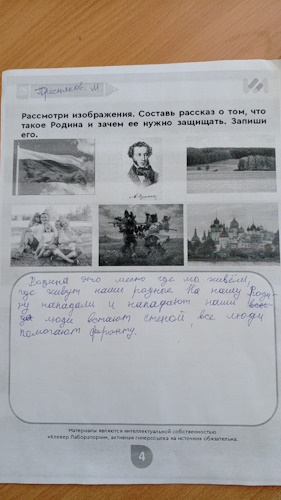 Пресняков. М
Рассмотри изображения. Составь рассказ о том, что
такое Родина и зачем ее нужно защищать. Запиши
его.
Родина это место где мы живём,
где живут наши родные. На нашу Роди-
ну нападали и нападают, наши
люди встают стеной, все люди
помогают фронту.
Материалы являются интеллектуальной собственностью
«Клевер Лаборатории», активная гиперссылка на источник обязательна.
4